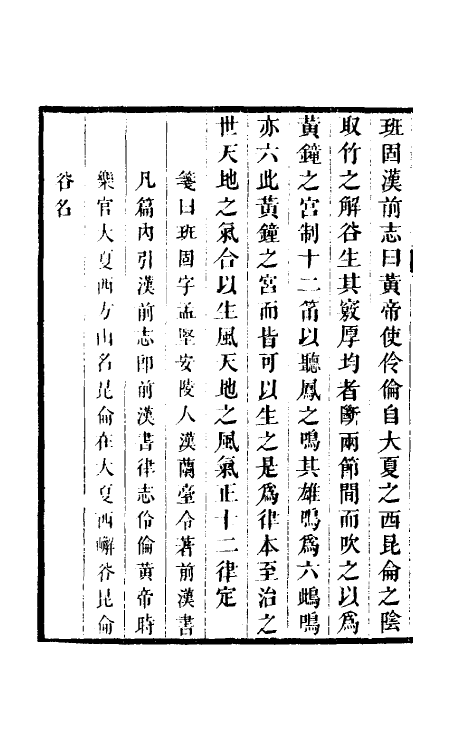 班固漢前志曰黃帝使伶倫自大夏之西昆侖之陰
取竹之解谷生其竅厚均者斷兩節間而吹之以爲
黃鐘之宮制十二筩以聽鳳之鳴其雄鳴爲六鴟鳴
亦六此黃鐘之宮而皆可以生之是爲律本至治之
世天地之氣合以生風天地之風氣正十二律定
箋曰班固字孟堅安陵人漢蘭臺令著前漢書
凡篇內引漢前志卽前漢書律志伶倫黃帝時
樂官大夏西方山名昆侖在大夏西嶰谷昆侖
谷名